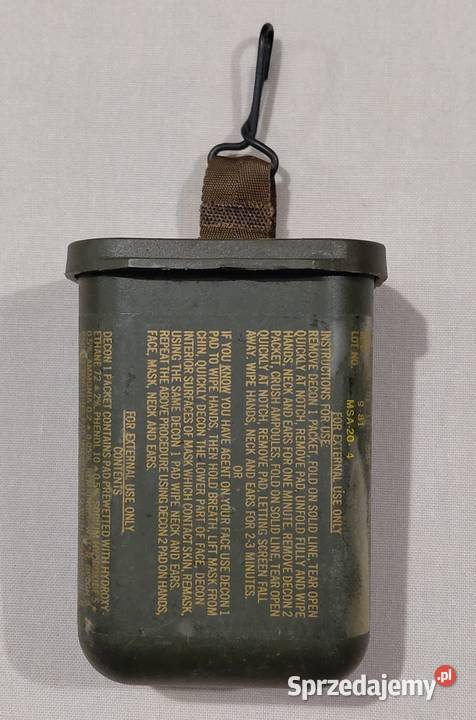 9 81
LOT NO. MSA-20- 4
FOR EXTERNAL USE ONLY
INSTRUCTIONS FOR USE
REMOVE DECON 1 PACKET, FOLD ON SOLID LINE, TEAR OPEN
QUICKLY AT NOTCH, REMOVE PAD, UNFOLD FULLY AND WIPE
HANDS, NECK AND EARS FOR ONE MINUTE. REMOVE DECON 2
PACKET, CRUSH AMPOULES, FOLD ON SOLID LINE, TEAR OPEN
QUICKLY AT NOTCH, REMOVE PAD, LETTING SCREEN FALL
AWAY. WIPE HANDS, NECK AND EARS FOR 2-3 MINUTES.
OR
IF YOU KNOW YOU HAVE AGENT ON YOUR FACE USE DECON 1
PAD TO WIPE HANDS, THEN HOLD BREATH, LIFT MASK FROM
CHIN, QUICKLY DECON THE LOWER PART OF FACE. DECON
INTERIOR SURFACES OF MASK WHICH CONTACT SKIN, REMASK,
USING THE SAME DECON 1 PAD WIPE NECK AND EARS.
REPEAT THE ABOVE PROCEDURE USING DECON 2 PAD ON HANDS,
FACE, MASK, NECK AND EARS.
FOR EXTERNAL USE ONLY
CONTENTS
DECON 1 PACKET CONTAINS PAD PREWETTED WITH HYDROXY-
ETHANE 72 ± 2%, PHENOL 10 ± 0.5%, SODIUM
0.5%, AMMONIA 0.2
Sprzedajemy.pl